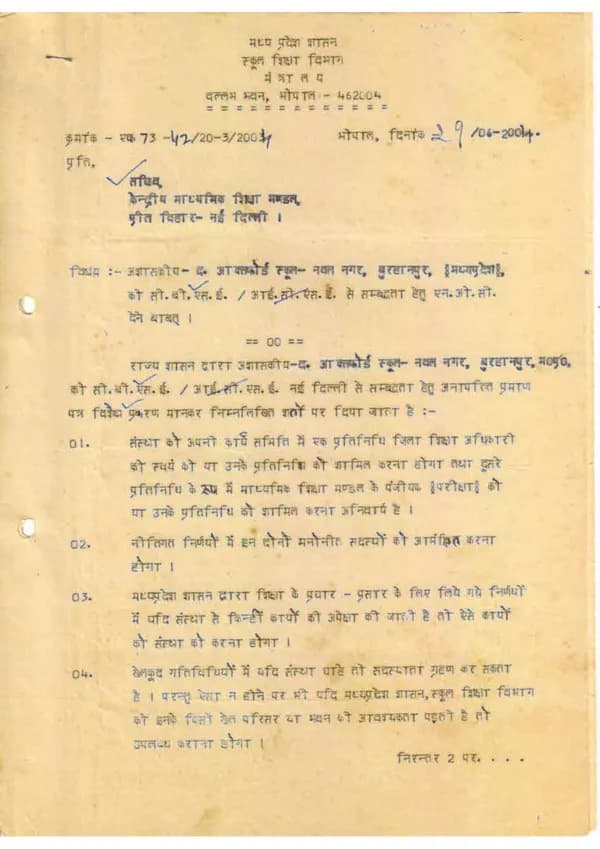 मध्य प्रदेश शासन
स्कूल शिक्षा विभाग
मंत्रालय
वल्लभ भवन, भोपाल - 462004
= = = = = = = = = = = = =
क्रमांक - एफ 73 -42/20-3/2004 भोपाल, दिनांक 29/06-2004.
प्रति,
सचिव,
केन्द्रीय माध्यमिक शिक्षा मण्डल,
प्रीत विहार- नई दिल्ली ।
विषय :- अशासकीय- द. आक्सफोर्ड स्कूल- नवल नगर, बुरहानपुर, §मध्यप्रदेश§,
को सी.बी.एस.ई. / आई.सी.एस.ई. से सम्बद्धता हेतु एन.ओ.सी.
देने बाबत् ।
== 00 ==
राज्य शासन द्वारा अशासकीय-द. आक्सफोर्ड स्कूल- नवल नगर, बुरहानपुर, म0प्र0,
को सी.बी.एस.ई. / आई.सी.एस.ई. नई दिल्ली से सम्बद्धता हेतु अनापत्ति प्रमाण
पत्र विशेष प्रकरण मानकर निम्नलिखित शर्तो पर दिया जाता है :-
01. संस्था को अपनी कार्य समिति में एक प्रतिनिधि जिला शिक्षा अधिकारी
को स्वयं को या उनके प्रतिनिधि को शामिल करना होगा तथा दूसरे
प्रतिनिधि के रूप में माध्यमिक शिक्षा मण्डल के पंजीयक §परीक्षा§ को
या उनके प्रतिनिधि को शामिल करना अनिवार्य है ।
02. नीतिगत निर्णयों में इन दोनों मनोनीत सदस्यों को आमंत्रित करना
होगा ।
03. मध्यप्रदेश शासन द्वारा शिक्षा के प्रचार - प्रसार के लिए लिये गये निर्णयों
में यदि संस्था से किन्हीं कार्यो की अपेक्षा की जाती है तो ऐसे कार्यो
को संस्था को करना होगा ।
04. खेलकूद गतिविधियों में यदि संस्था चाहे तो सदस्यता ग्रहण कर सकता
है । परन्तु ऐसा न होने पर भी यदि मध्यप्रदेश शासन,स्कूल शिक्षा विभाग
को इनके किसी खेल परिसर या भवन की आवश्यकता पड़ती है तो
उपलब्ध कराना होगा ।
निरन्तर 2 पर. . . .